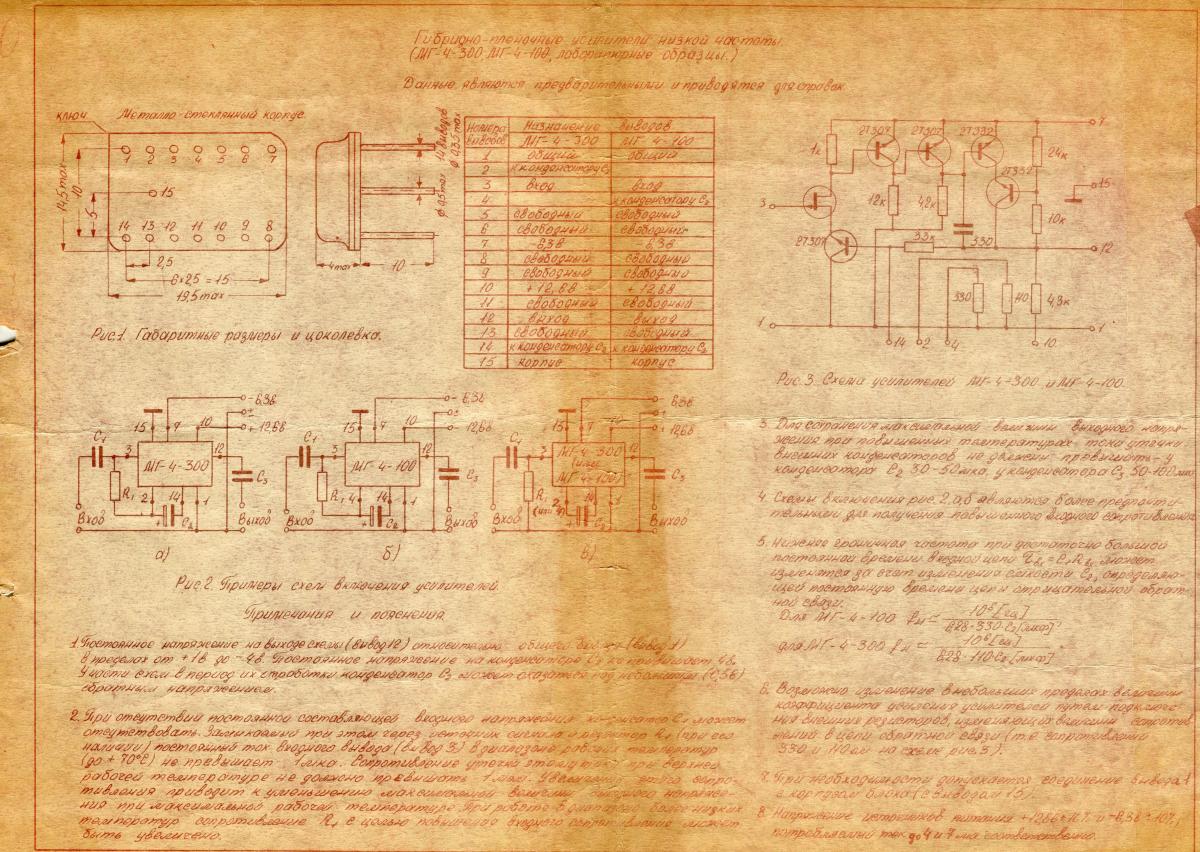 Гибридно-пленочные усилители низкой частоты.
(МГ-4-300 МГ-4-100, лабораторные образцы.)
Данные являются предварительными и приводятся для справок
ключ Металло-стеклянный корпус
1 2 3 4 5 6 7
15
14 13 12 11 10 9 8
14,5 max
10
5
2,5
6×2,5 = 15
19,5 max
4 max
10
14 выводов
ϕ 0,5 max
Рис.1. Габаритные размеры и цоколевка.
Номера выводов Назначение выводов
МГ-4-300 МГ-4-100
1 общий общий
2 к конденсатору C2
3 вход вход
4 к конденсатору C2
5 свободный свободный
6 свободный свободный
7 -6,3в -6,3в
8 свободный свободный
9 свободный свободный
10 +12,6в +12,6в
11 свободный свободный
12 выход выход
13 свободный свободный
14 к конденсатору C2 к конденсатору C2
15 корпус корпус
3 1к 2Т307 2Т307 2Т307 2Т332 2Т332 24к 7
15
12к 4,2к 33к 330 10к 12
330 110 4,3к
1 14 2 4 10 1
Рис. 3. Схема усилителей МГ-4-300 и МГ-4-100.
15 7 10 - 6,3в + 12,6в
C1 3 МГ-4-300 12 C3
R1 2 14 1 C2
Вход Выход
а)
15 7 10 - 6,3в + 12,6в
C1 3 МГ-4-100 12 C3
R1 4 14 1 C2
Вход Выход
б)
15 7 10 6,3в 12,6в
C1 3 МГ-4-300 (или МГ-4-100) 12 C3
R1 2 (или 4) 14 1 C2
Вход Выход
в)
Рис.2. Примеры схем включения усилителей.
Примечания и пояснения.
1. Постоянное напряжение на выходе схемы (вывод 12) относительно общего (вывод 1)
в пределах от +1в до -4в. Постоянное напряжение на конденсаторе C2 не превышает 4в.
У части схем в период их отработки конденсатор C3 может оказаться под небольшим
обратным напряжением.
2. При отсутствии постоянной составляющей входного напряжения конденсатор C1 может
отсутствовать. Замыкаемый при этом через источник сигнала и резистор R1 (при его
наличии) постоянный ток входного вывода (вывод 3) в диапазоне рабочих температур
(до +70°С) не превышает 1мка. Сопротивление утечки этому пути при верхней
рабочей температуре не должно превышать 1 мом. Увеличение этого сопро-
тивления приводит к уменьшению максимальной величины выходного напряже-
ния при максимальной рабочей температуре. При работе в диапазоне более низких
температур сопротивление R1 с целью повышения входного сопротивления может
быть увеличено.
3. Для сохранения максимальной величины выходного напря-
жения при повышенных температурах тока утечки
внешних конденсаторов не должен превышать у
конденсатора C2 30-50мка, у конденсатора C3 50-100мка
4. Схемы включения рис.2.а,б являются более предпочти-
тельными для получения повышенного входного сопротивления.
5. Нижняя граничная частота при достаточно большой
постоянной времени входной цепи может
изменятся за счет изменения емкости C2, определяю-
щей постоянную времени цепи отрицательной обрат-
ной связи.
Для МГ-4-100 fн = 10⁶ [гц] / 6,28·330·C2[мкф]
для МГ-4-300 fн = 10⁶ [гц] / 6,28·110·C2[мкф]
6. Возможно изменение в небольших пределах величины
коэффициента усиления усилителей путем подключе-
ния внешних резисторов, изменяющих величины сопротив-
лений в цепи обратной связи (т.е сопротивлений
330 и 110 ом на схеме рис.3).
7. При необходимости допускается соединение вывода 1
с корпусом блока (с выводом 15).
8. Напряжение источников питания +12,6в±10% и -6,3в±10%,
потребляемый ток до 4 и 7 ма соответственно.